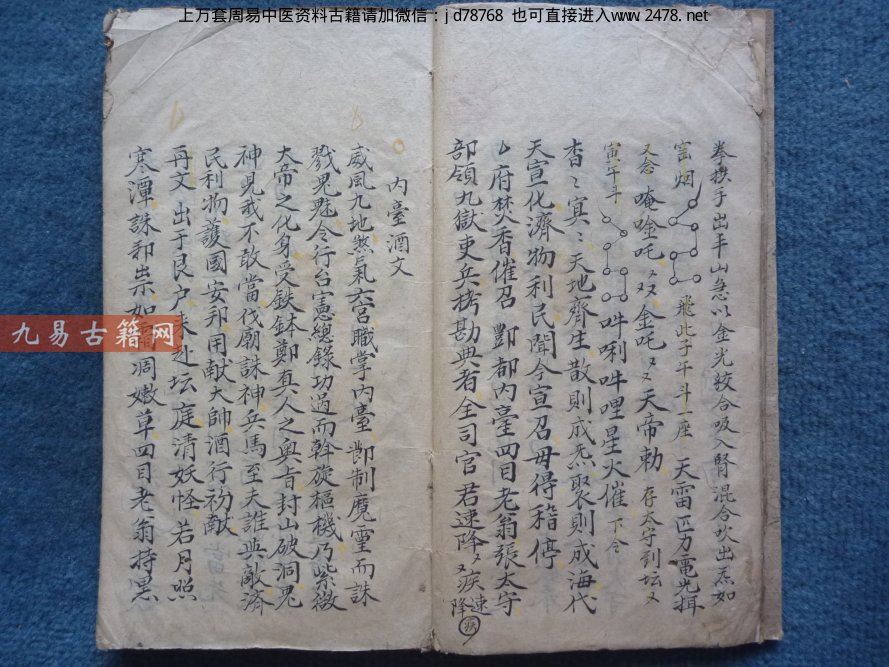 上万套周易中医资料古籍请加微信：jd78768 也可直接进入www.2478.net
拳揆手出半山急以金光絞合吸入腎混合坎出炁如
雲烟 飛此子午斗一座 天雷匹力電光揖
又念 唵唫吒 又又金吒又又天帝勅 存太守到坛又
寅午斗 吽唎吽哩星火催 下令
杳〻冥〻天地齊生散則成炁聚則成海代
天宣化濟物利民聞令宣召毋得稽停
府焚香催召 酆都内臺四目老翁張太守
部領九獄吏兵拷勘典者全司官君速降又又疾速
降
内臺酒文
威風九地煞氣六宮職掌内臺 酆制魔靈而誅
戮鬼魅令行台憲總錄功過而斡旋樞機乃紫微
大帝之化身受鉄鉢鄭真人之奥旨封山破洞鬼
神見我不敢當伐廟誅神兵馬至夫誰與敵濟
民利物護國安邦用献大帥酒行初献
再文 出于艮户来赴坛庭清妖怪若月照
寒潭誅和祟如霜凋嫩草四目老翁持黑
九易古籍网